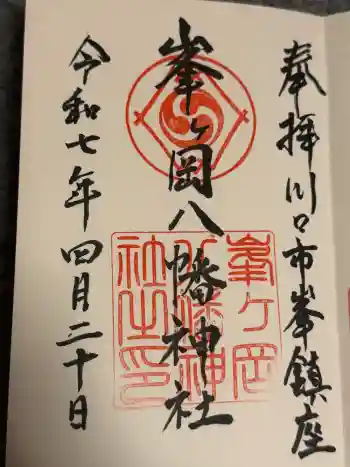 奉拝川口市峯鎮座
峯ヶ岡八幡神社
峯ヶ岡八幡神社之印
令和七年四月二十日